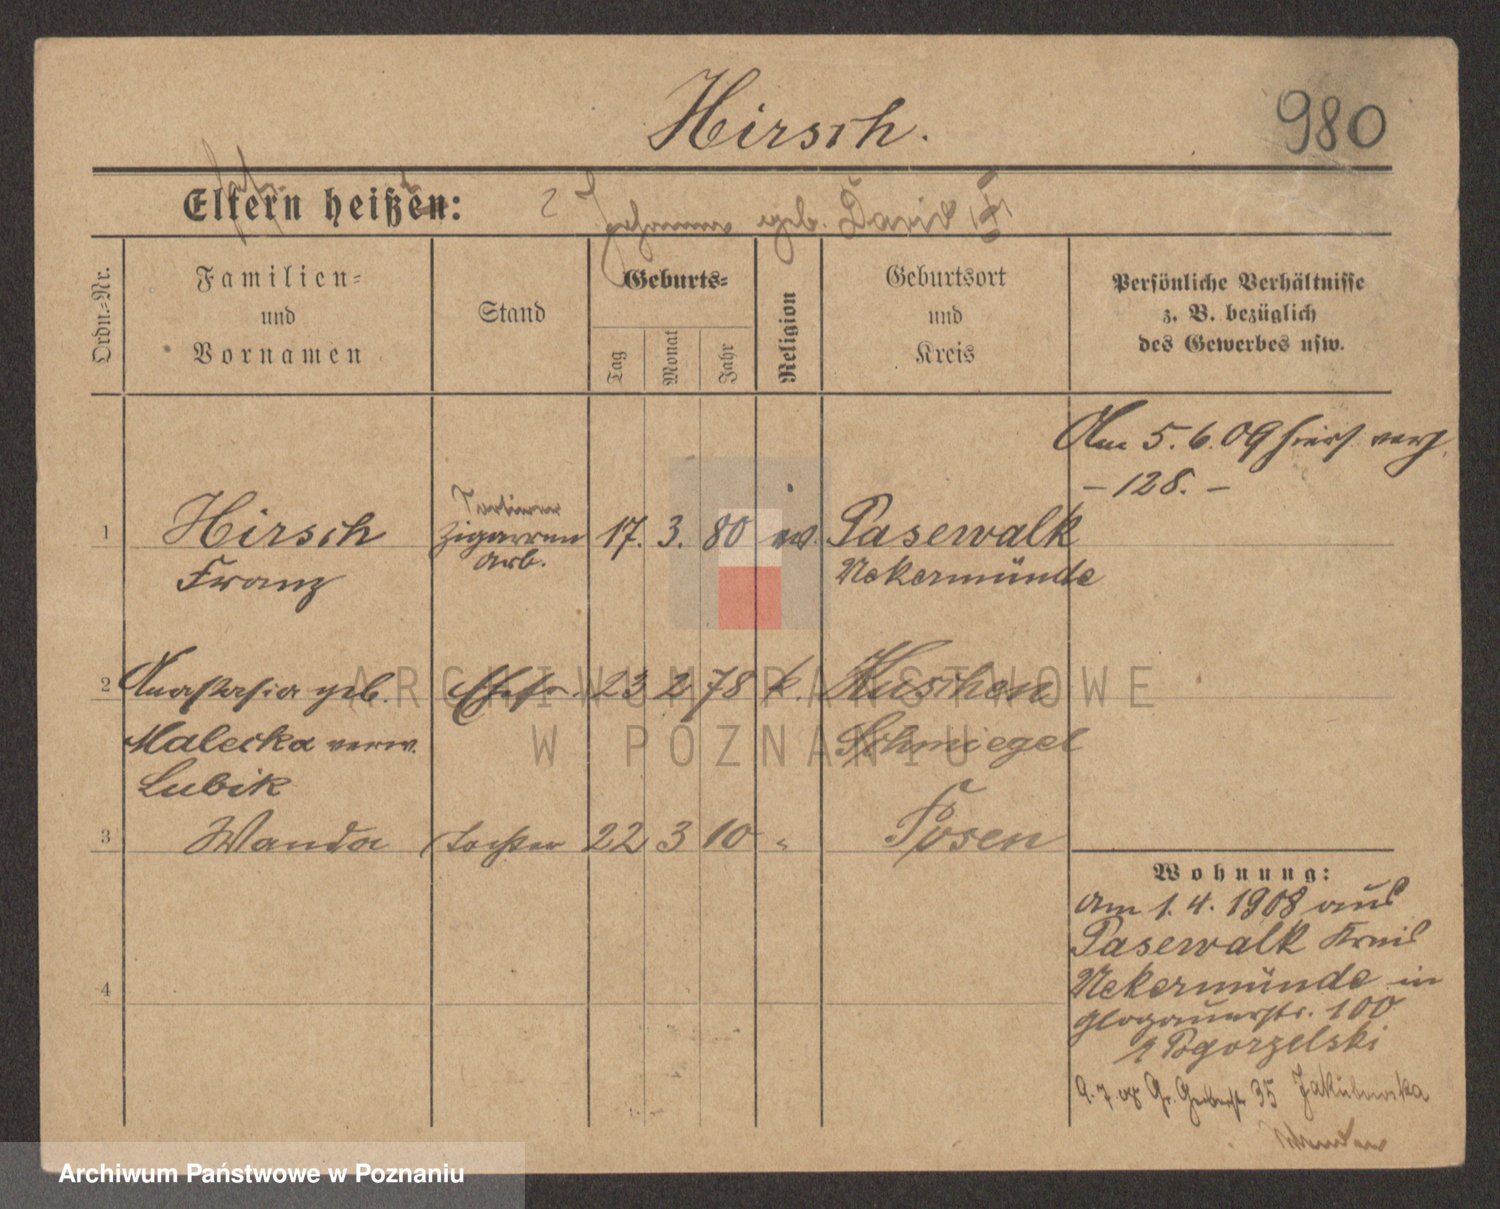 Hirsch.
980
Eltern heißen:
Johanna geb. David
Ordn.-Nr.
Familien-
und
Vornamen
Stand
Geburts-
Tag
Monat
Jahr
Religion
Geburtsort
und
Kreis
Persönliche Verhältnisse
z. B. bezüglich
des Gewerbes usw.
Am 5.6.09 hier
- 128. -
1 Hirsch Zigarren 17. 3. 80 ev. Pasewalk
Franz arb. Uekermünde
2 Anastasia geb. Ehefr. 23 2 78 k. Kuschen
Malecka verw. Schmiegel
Lubik
3 Wanda Tochter 22 3 10 " Posen
4
Wohnung:
am 1. 4. 1908 aus
Pasewalk Kreis
Uekermünde in
Glogauerstr. 100
Pgorzelski
9.7.08 Gr. Gerberstr 35 Jakubowska
ARCHIWUM PAŃSTWOWE
W POZNANIU
Archiwum Państwowe w Poznaniu